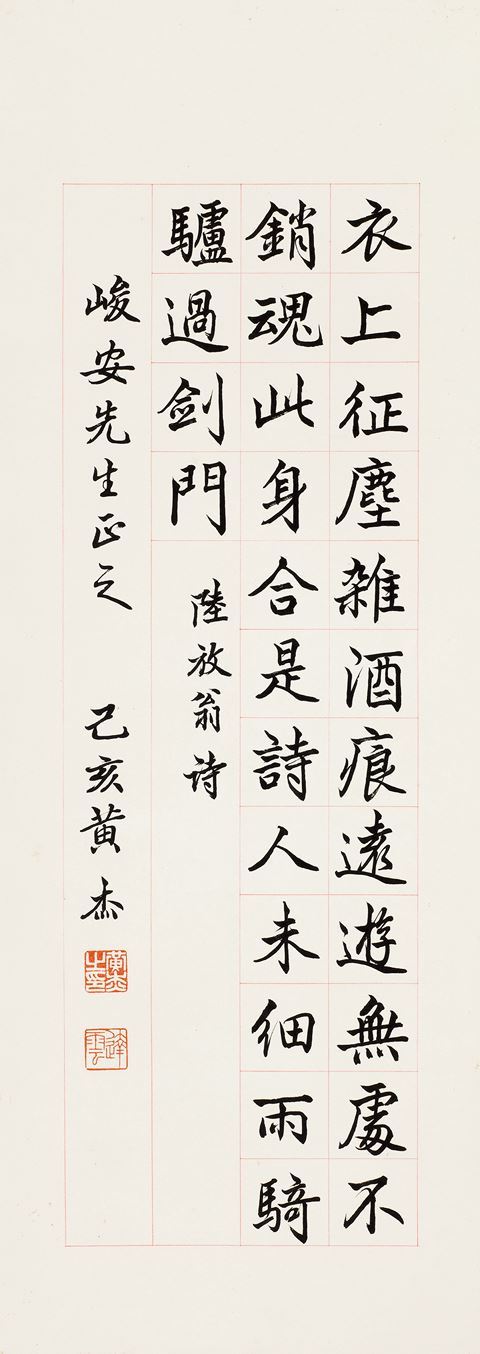 衣上征塵雜酒痕遠遊無處不
銷魂此身合是詩人未細雨騎
驢過劍門
陸放翁詩
峻安先生正之
己亥黄杰
黄杰之印
達雲